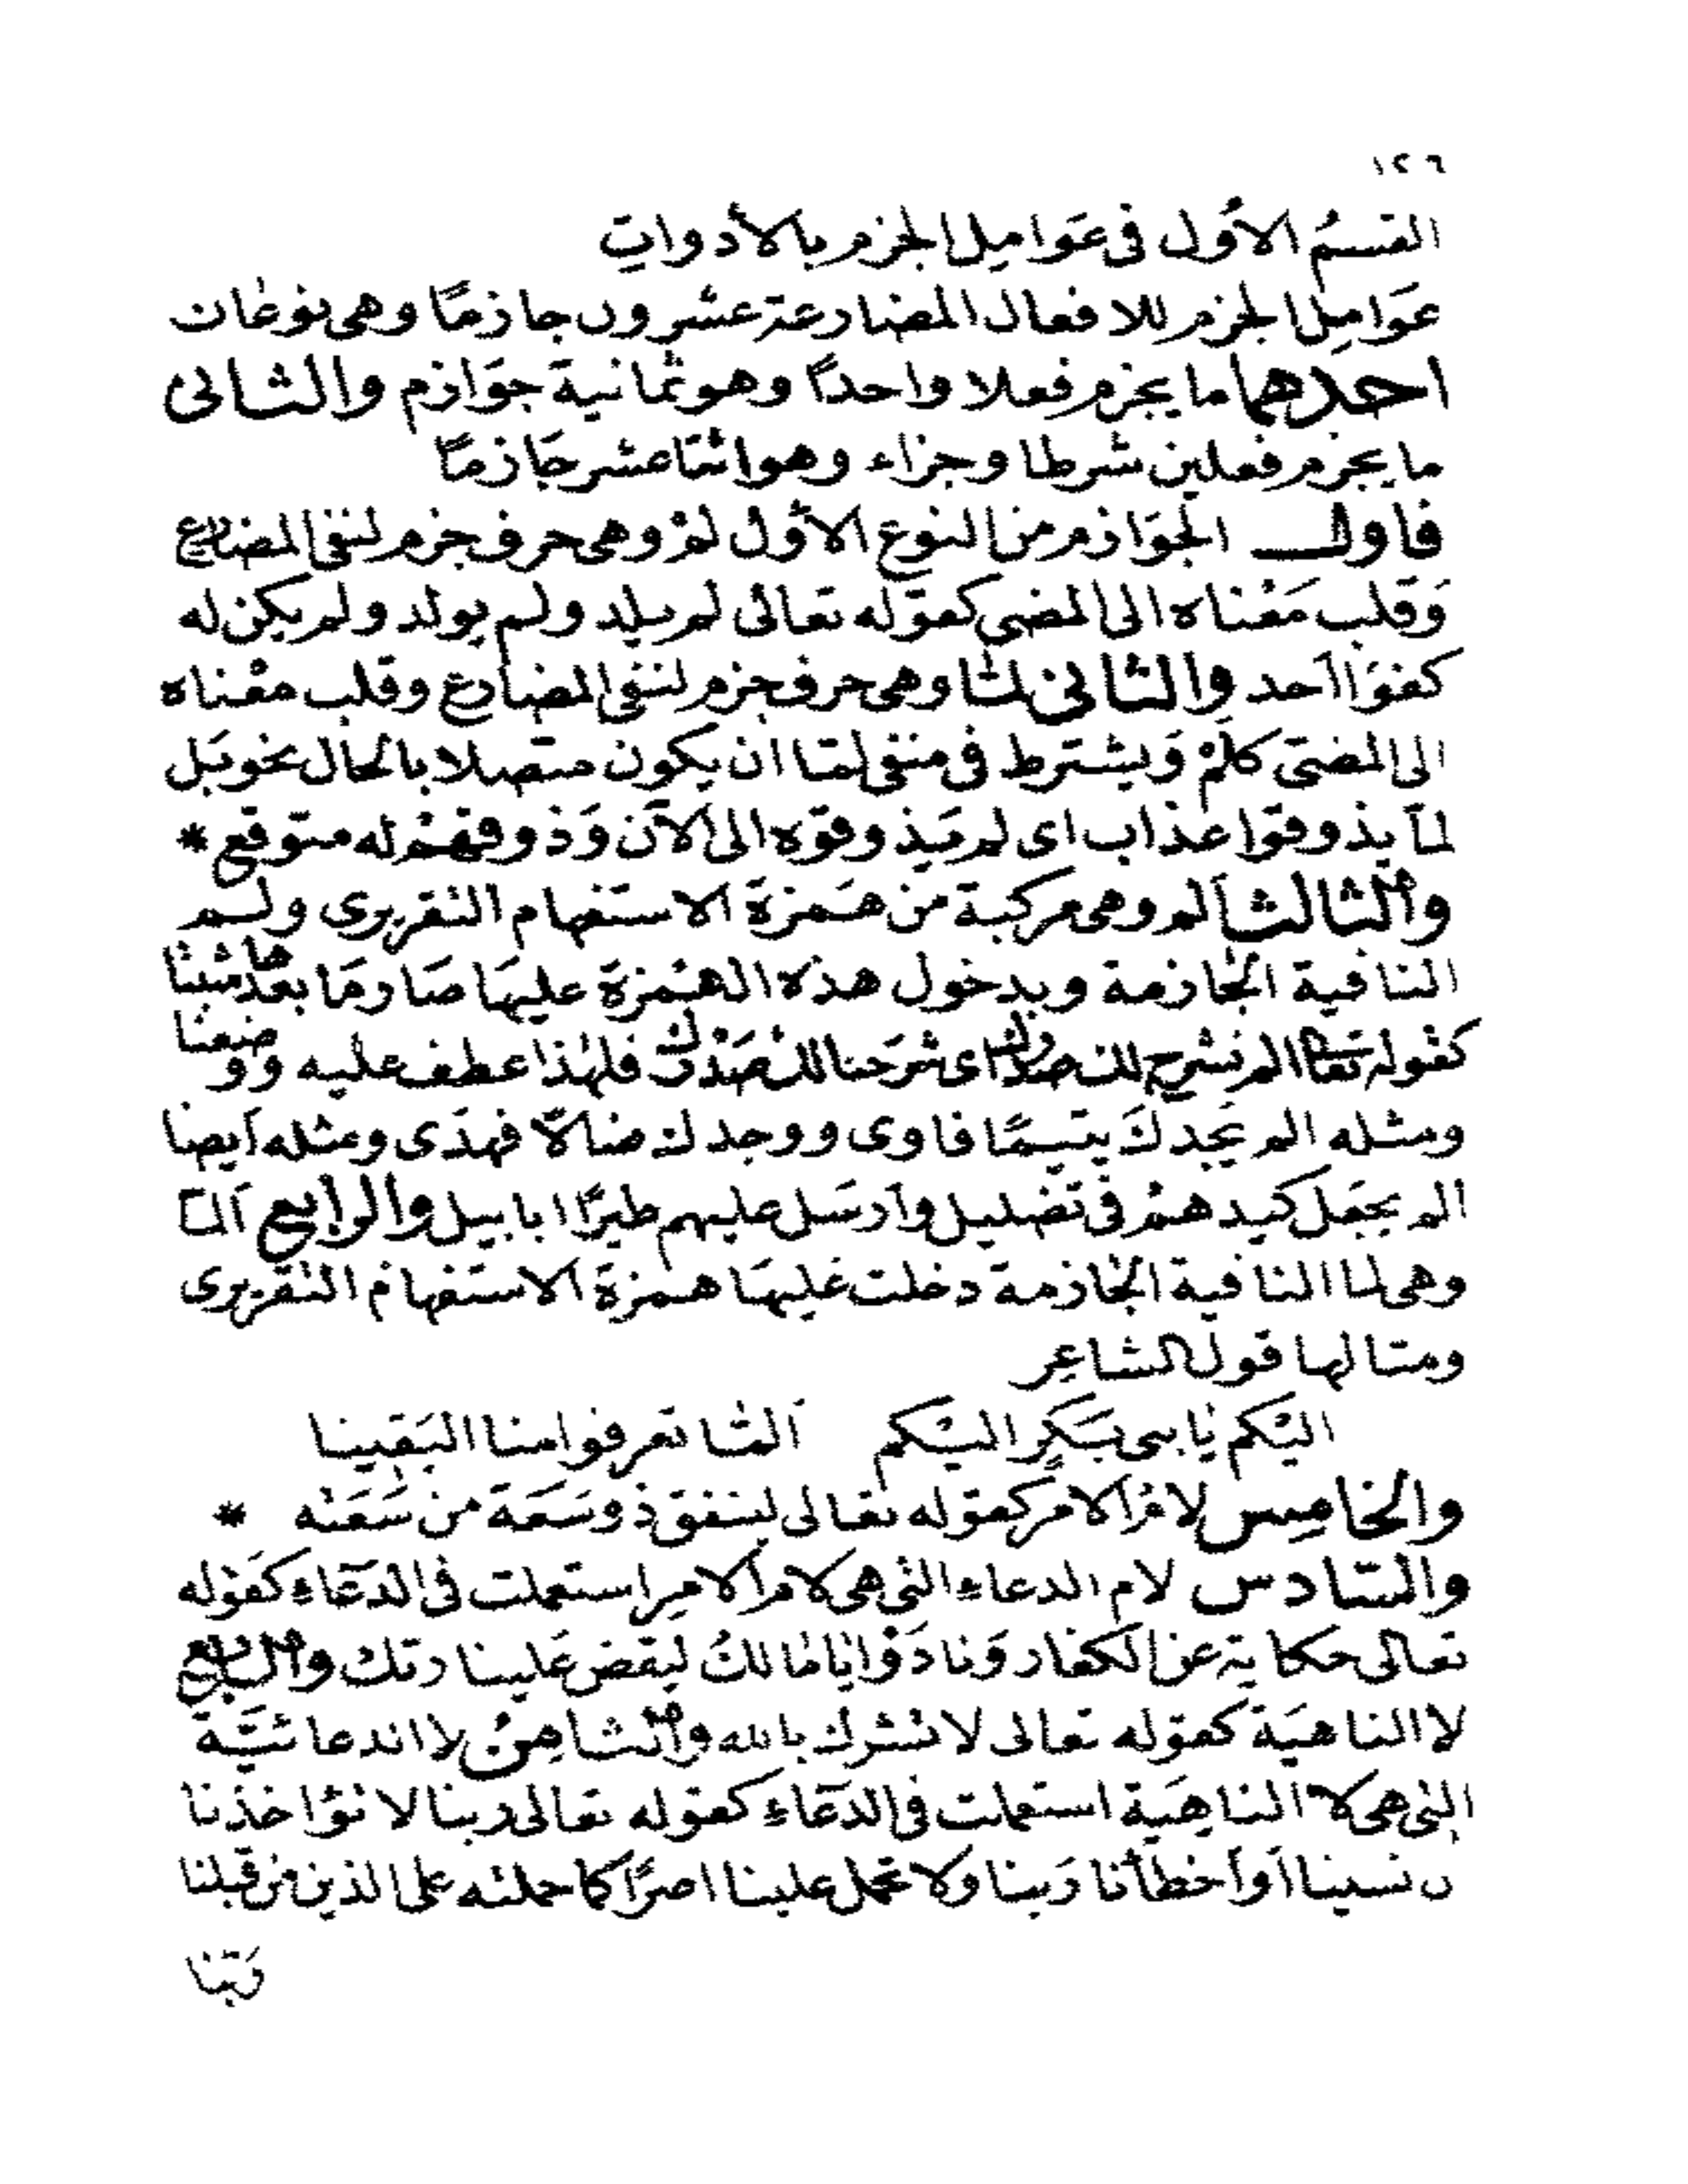 ١٢٦
القسمُ الاَوّل فى عَوامِل الجزم بالأدواتِ
عَوَامِل الجزم للافعال المضارعة عشرون جازمًا وهى نوعان
احدهما ما يجزم فعلا واحدًا وهو ثمانية جوَازم والثانى
ما يجزم فعلين شرطا وجزاء وهو اثنا عشر جَازمًا
فاول الجوَازم من النوع الاوّل لمْ وهى حرف جزم لنفى المضارع
وَقلب مَعْناه الى المضى كقوله تعالى لم يلد ولم يولد ولم يكن له
كفوًا اَحد والثانى لمّا وهى حرف جزم لنفى المضارع وقلب معْناه
الى المضىّ كلمْ وَيشترط فى منفى لمّا ان يكون متصلا بالحال نحو بَل
لمّا يذوقوا عذاب اى لم يَذوقوه الى الآن وَذوقهمْ له متوقع *
والثالث اَلم وهى مركبة من هَمزة الاستفهام التقريرى ولم
النافية الجازمة وبدخول هذه الهمْزة عليهَا صَار مَا بعدها مثبتا
كقوله تعالى الم نشرح لك صدرك اى شرَحنا لك صَدْرك فلهذا عطف عليه ووضعنا
ومثله الم يَجدكَ يتيمًا فاوى ووجدك ضالّا فهدَى ومثله اَيضا
الم يجعَل كيدهمْ فى تَضليل واَرسَل عليهم طيرًا ابابيل والرابع اَلمّا
وهى لما النافية الجازمة دخلت عَليهَا همزة الاستفهام التقريرى
ومثالها قول الشاعِر
اليْكم يَا بنى بَكرٍ اليْكم اَلمّا تعرفوا منا اليَقينا
والخامِس لامُ الامر كقوله تعالى لينفق ذو سَعَة من سَعَته *
والسّادس لام الدعاء التى هى لام الامرِ استعملت فى الدعَاءِ كقوله
تعالى حكاية عن الكفار وَنادَوْا يَا مَالكُ ليقض عَلينا ربّك والسابع
لا الناهيَة كقوله تعالى لا تشرك بالله والثامِنُ لا الدعائيَّة
التى هى لا الناهِيَة استعملت فى الدعَاءِ كقوله تعالى ربنا لا تؤاخذنا
ن نسينا اَو اَخطأنا رَبنا ولا تحمل علينا اصرًا كما حملته على الذين من قبلنا
رَبّنا